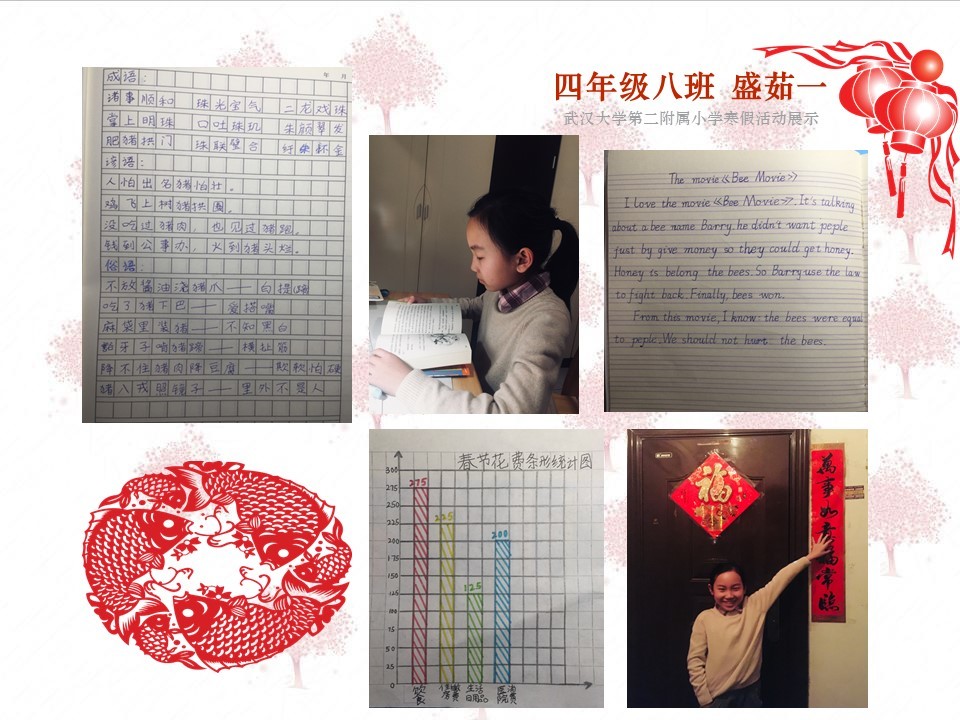 四年级八班 盛茹一
武汉大学第二附属小学寒假活动展示
年 月
成语：
诸事顺和 珠光宝气 二龙戏珠
掌上明珠 口吐珠玑 朱颜翠发
肥猪拱门 珠联璧合
谚语：
人怕出名猪怕壮。
鸡飞上树猪拱圈。
没吃过猪肉，也见过猪跑。
钱到公事办，火到猪头烂。
俗语：
不放酱油烧猪爪——白提蹄
吃了猪下巴——爱搭嘴
麻袋里装猪——不知黑白
牙子啃猪蹄——横扯筋
降不住猪肉降豆腐——欺软怕硬
猪八戒照镜子——里外不是人
The movie《Bee Movie》
I love the movie《Bee Movie》. It's talking
about a bee name Barry. he didn't want peple
just by give money so they could get honey.
Honey is belong the bees. So Barry use the law
to fight back. Finally, bees won.
From this movie, I know: the bees were equal
to peple. We should not hurt the bees.
春节花费条形统计图
300
275
250
225
200
175
150
125
100
75
50
25
0
275
225
125
200
饮食
生活日用品
医院消费
福
萬事如意福常臨